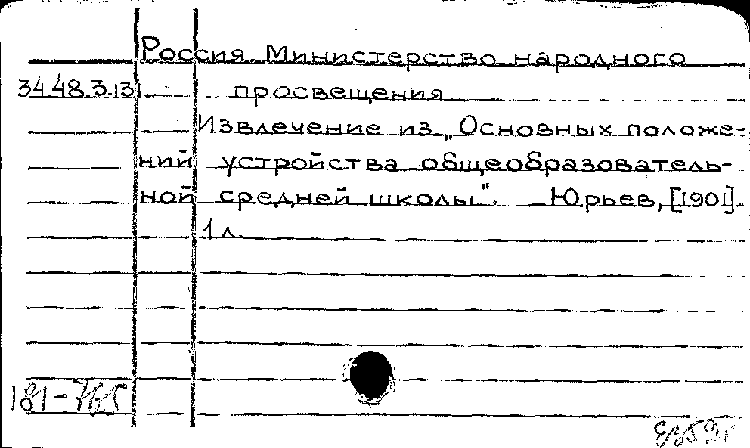 Россия Министерство народного
34.48.3.13 просвещения
Извлечение из „Основных положе-
ний устройства общеобразователь-
ной средней школы". Юрьев, [1901].
1 л.